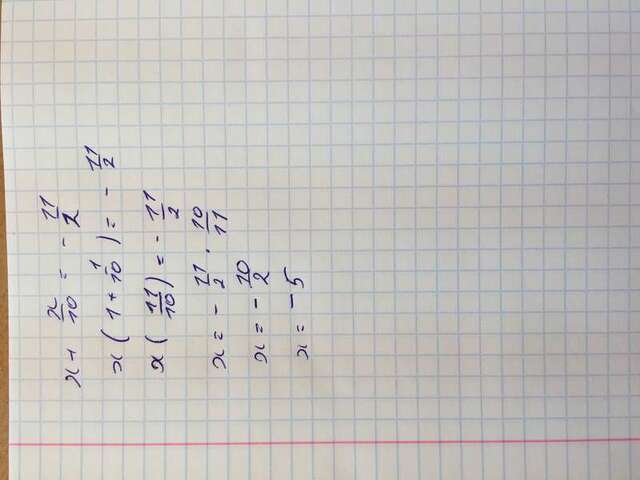 x + x/10 = - 11/2
x ( 1 + 1/10 ) = - 11/2
x ( 11/10 ) = - 11/2
x = - 11/2 · 10/11
x = - 10/2
x = - 5